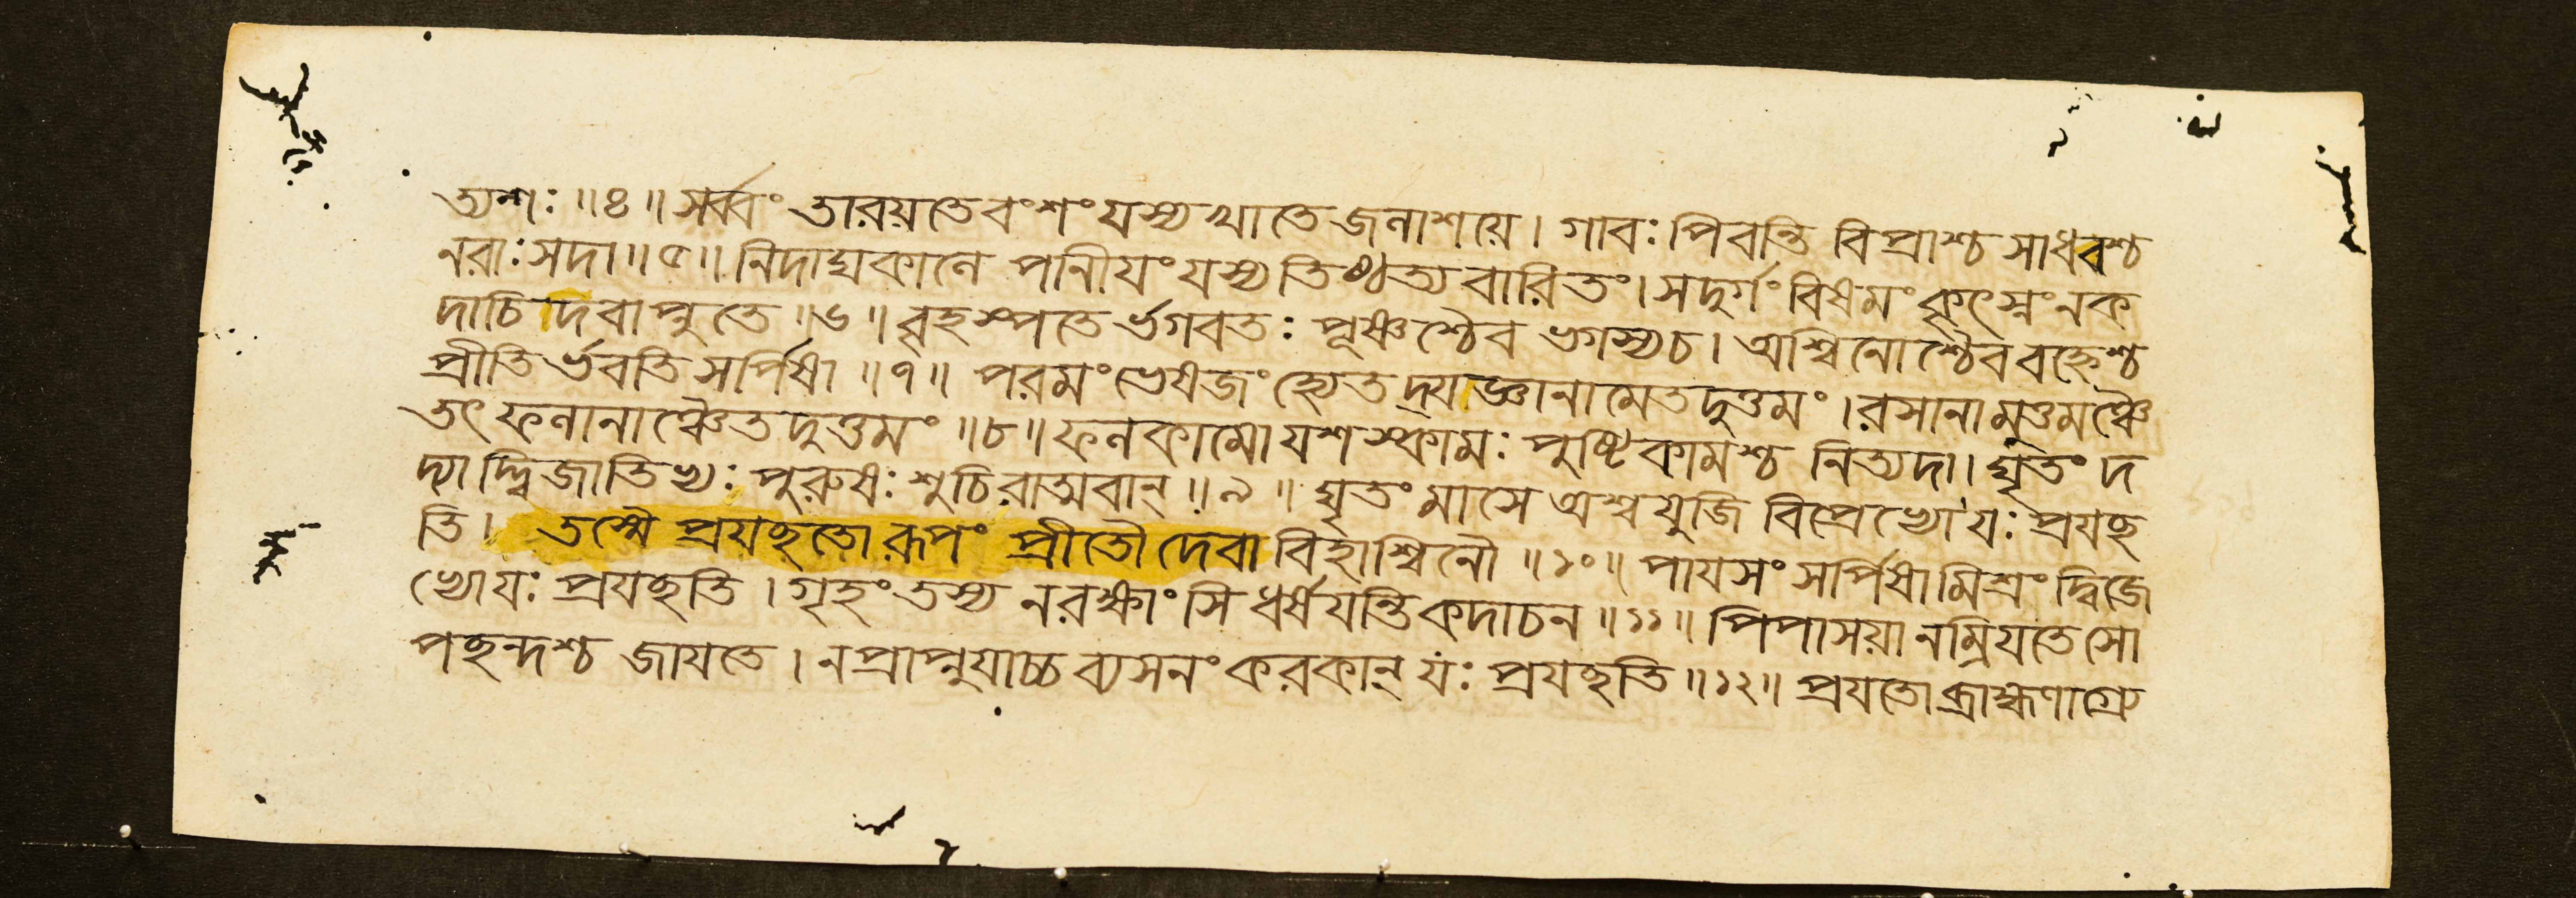 ত্যশঃ ॥৪॥ সর্ব্বং তারয়তে বংশং যস্য খাতে জলাশয়ে । গাবঃ পিবন্তি বিপ্রাশ্চ সাধবশ্চ
নরাঃ সদা ॥৫॥ নিদাঘকালে পানীযং যস্য তিষ্ঠত্যবারিতং । স দুর্গং বিষমং কৃৎস্নং ন ক
দাচিদবাপ্নুতে ॥৬॥ বৃহস্পতের্ভগবতঃ পূষ্ণশ্চৈব ভগস্য চ । অশ্বিনোশ্চৈব বহ্নেশ্চ
প্রীতির্ভবতি সর্পিষা ॥৭॥ পরমং ভেষজং হ্যেতদ্যজ্ঞানামেতদুত্তমং । রসানামুত্তমঞ্চৈ
তৎ ফলানাঞ্চৈতদুত্তমং ॥৮॥ ফলকামো যশস্কামঃ পুষ্টিকামশ্চ নিত্যদা । ঘৃতং দ
দ্যাদ্দ্বিজাতিভ্যঃ পুরুষঃ শুচিরাত্মবান্ ॥৯॥ ঘৃতং মাসে অশ্বযুজি বিপ্রেভ্যো যঃ প্রযচ্ছ
তি । তস্মৈ প্রযচ্ছতো রূপং প্রীতৌ দেবাবিহাশ্বিনৌ ॥১০॥ পাযসং সর্পিষা মিশ্রং দ্বিজে
ভ্যো যঃ প্রযচ্ছতি । গৃহং তস্য ন রক্ষাংসি ধর্ষযন্তি কদাচন ॥১১॥ পিপাসয়া ন ম্রিযতে সো
পচ্ছন্দশ্চ জাযতে । ন প্রাপ্নুযাচ্চ ব্যসনং করকান্ যঃ প্রযচ্ছতি ॥১২॥ প্রযতো ব্রাহ্মণাগ্রে